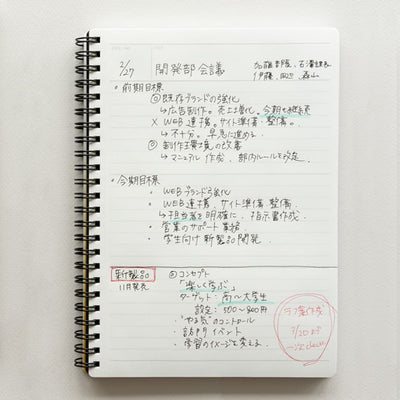 2/27 開発部会議 加藤部長、石澤課長
伊藤、田辺、森山
・前期目標
◎既存ブランドの強化
↳広告制作。売上増化。今期も継続
× WEB連携。サイト準備・整備。
↳不十分。早急に進める。
◎制作工費の改善
↳マニュアル作成、部内ルールを改定。
・今期目標
・WEBブランド強化
・WEB連携、サイト準備、整備。
↳担当者を明確に、指示書作成。
・営業のサポート業務
・学生向け新製品開発。
新製品 ◎コンセプト
11月発売 「楽しく学ぶ」
ターゲット:高〜大学生
設定:500〜800円
・"やる気"のコントロール
・イベント
・学習のイメージを変える。
ラフ案作成
3/20まで
一次check